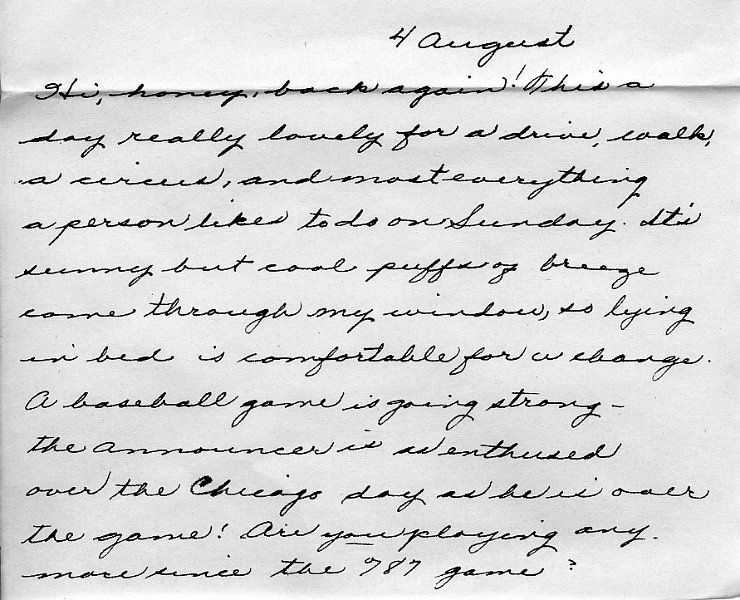 4 August
Hi, honey, back again! This a
day really lovely for a drive, walk,
a circus, and most everything
a person likes to do on Sunday. It's
sunny but cool puffs of breeze
come through my window, so lying
in bed is comfortable for a change.
A baseball game is going strong –
the announcer is as enthused
over the Chicago day as he is over
the game! Are you playing any.
more since the 787 game?